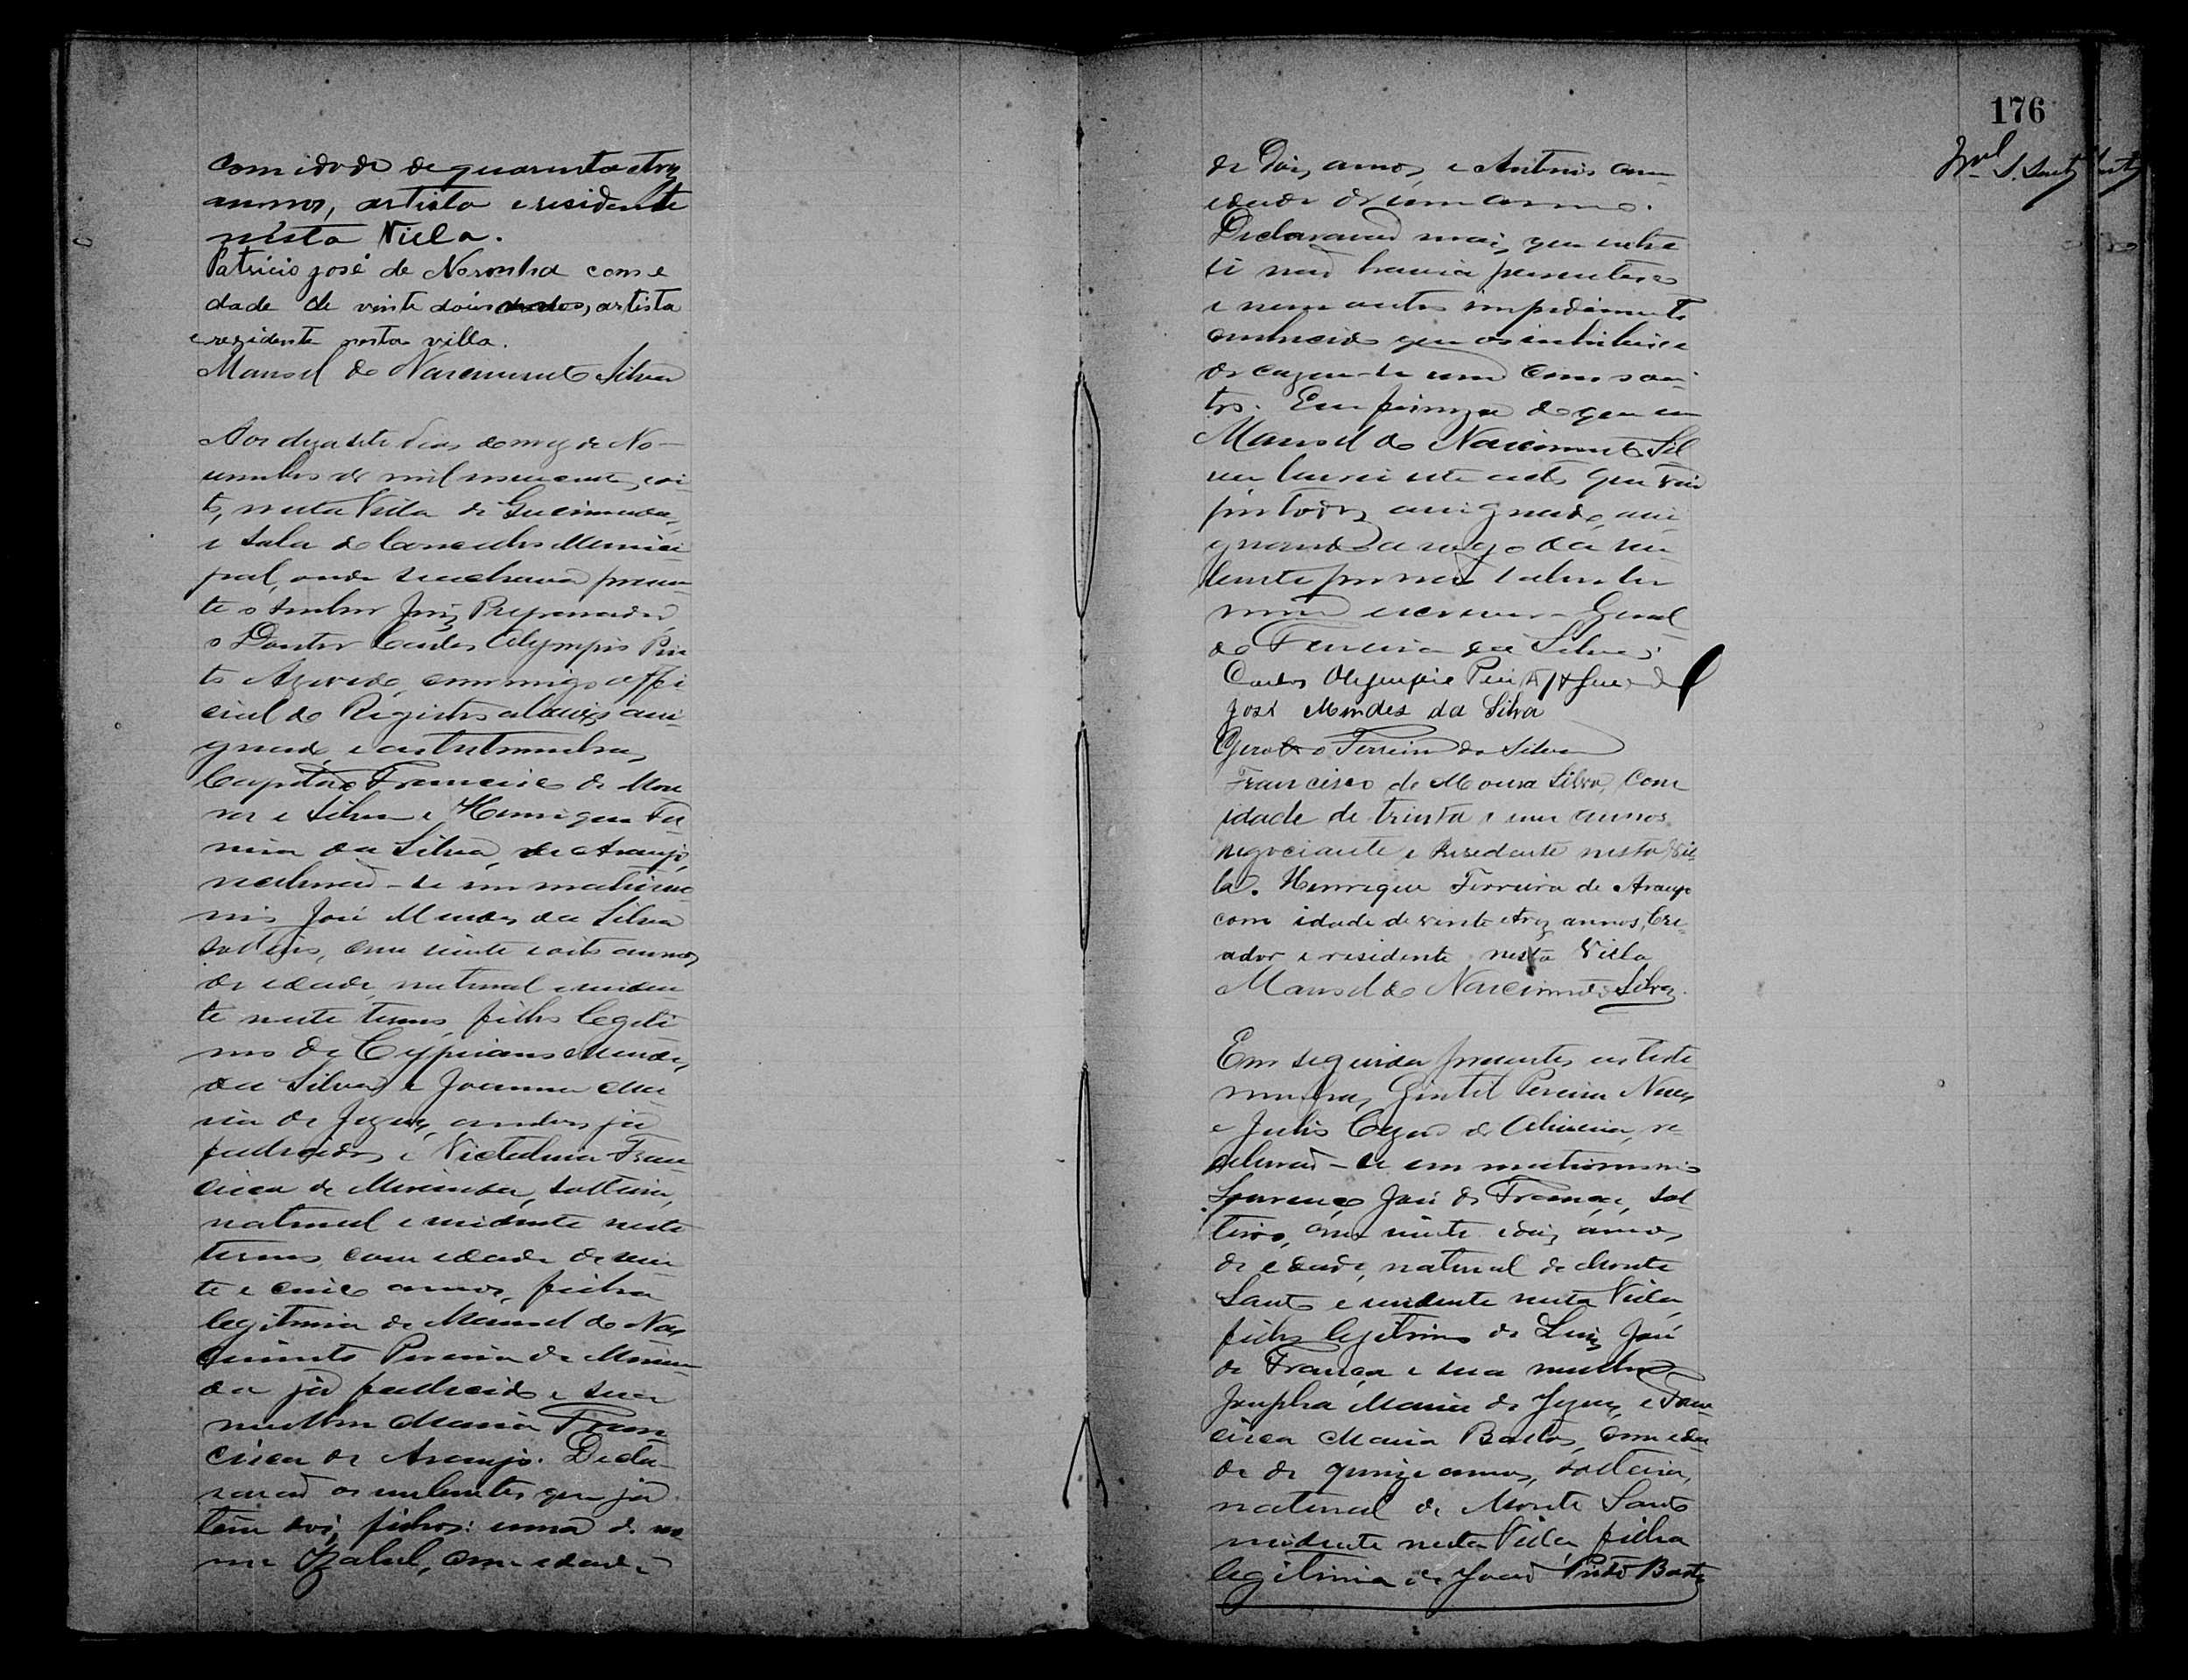 com idade de quarenta e trez
annos, artista e residente
nesta Villa.
Patricio José de Noronha com e
dade de vinte dois annos, artista
e rezidente nesta villa.
Manoel do Nascimento Silva
Aos dezasete dias do mez de No-
vembro de mil novecentos e oi-
to, nesta Villa de Queimadas,
e Sala do Conselho Munici-
pal, onde se achava presen-
te o Senhor Juiz Preparador,
o Doutor Carlos Olympio Pin
to Azevedo, commigo offi
cial do Registro abaixo assi
gnado, e as testemunhas,
Capitão Francisco de Mou
ra e Silva e Henrique Fer
reira da Silva, de Araujo,
receberão-se em matrimo
nio José Mendes da Silva
solteiro, com vinte e oito annos
de edade, natural e residen
te neste termo, filho legiti
mo de Cypriano Mendes
da Silva e Joanna Ma
ria de Jezus, ambos já
fallecidos, e Victalina Fran
cisca de Miranda, solteira,
natural e residente neste
termo, com edade de vin
te e cinco annos, filha
legitima de Manoel do Nas
cimento Pereira de Miran
da já fallecido e sua
mulher Maria Fran
cisca de Araujo. Decla-
rarão os nubentes que já
tem dois filhos: uma de no
me Izabel, com edade
176
de dois annos, e Antonio com
edade de um anno.
Declararão mais, que entre
si não havia parentesco
e nem outro impedimento
conhecido que os inhibisse
de cazar-se um com o ou-
tro. Em firmeza do que eu
Manoel do Nascimento Sil
va lavrei este acto que vai
por todos assignado, assi
gnando a rogo da nu
bente por não saber ler
nem escrever - Geral
do Ferreira da Silva.
Carlos Olympio Pinto Azevedo
José Mendes da Silva
Geraldo Ferreira da Silva
Francisco de Moura Silva, Com
idade de trinta e um annos
negociante e Residente nesta Vil
la. Henrique Ferreira de Araujo
com idade de vinte e trez annos, Cri-
ador e residente nesta Villa
Manoel do Nascimento Silva.
Em seguida presentes as teste
munhas, Gentil Pereira Neves
e Julio Cezar de Oliveira, re-
ceberão-se em matrimonio
Lourenço José de França, sol
teiro, com vinte e dois annos
de edade, natural de Monte
Santo e residente nesta Villa,
filho legitimo de Luiz José
de França e sua mulher
Josepha Maria de Jezus, e Fran
cisca Maria Bastos, com eda
de de quinze annos, solteira,
natural de Monte Santo
residente nesta Villa, filha
legitima de João Pinto Bastos